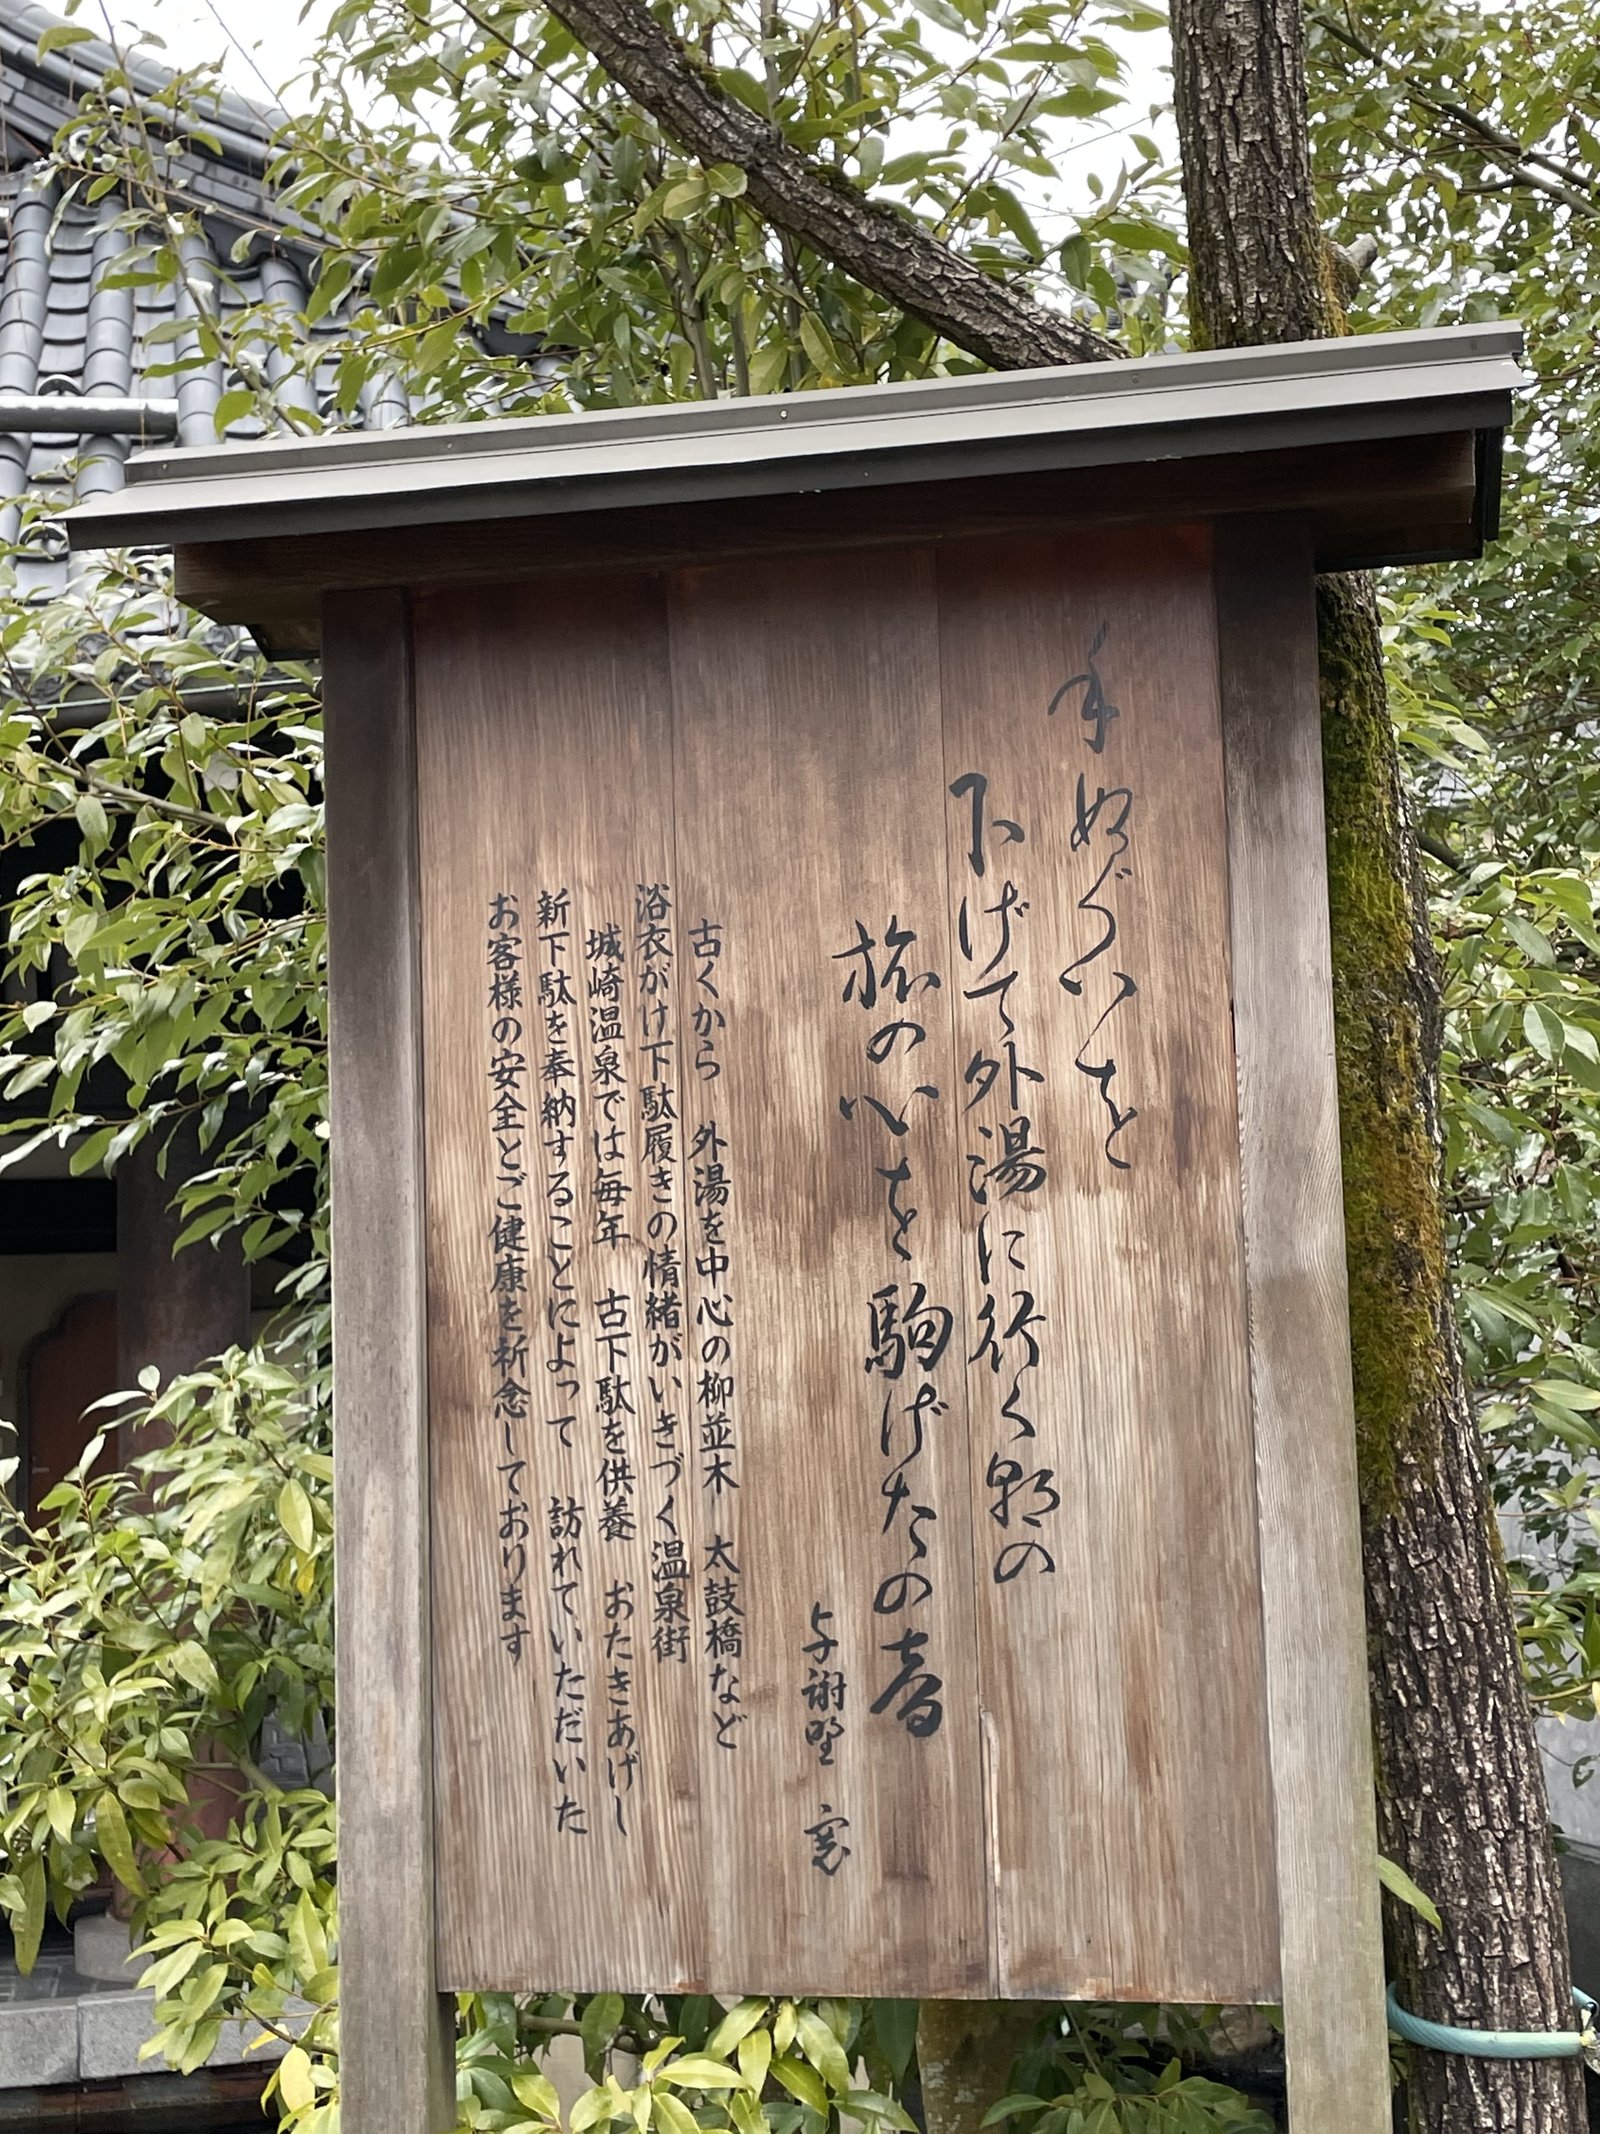 手ぬぐいを
下げて外湯に行く朝の
旅の心を駒げたの音
与謝野 寛
古くから 外湯を中心の柳並木 太鼓橋など
浴衣がけ下駄履きの情緒がいきづく温泉街
城崎温泉では毎年 古下駄を供養 おたきあげし
新下駄を奉納することによって 訪れていただいた
お客様の安全とご健康を祈念しております